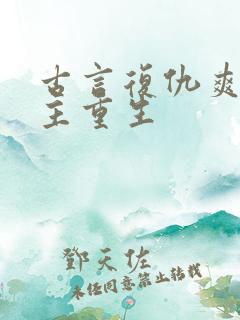 古言復仇爽
主重生
鄧天佐
未任同意禁止转载